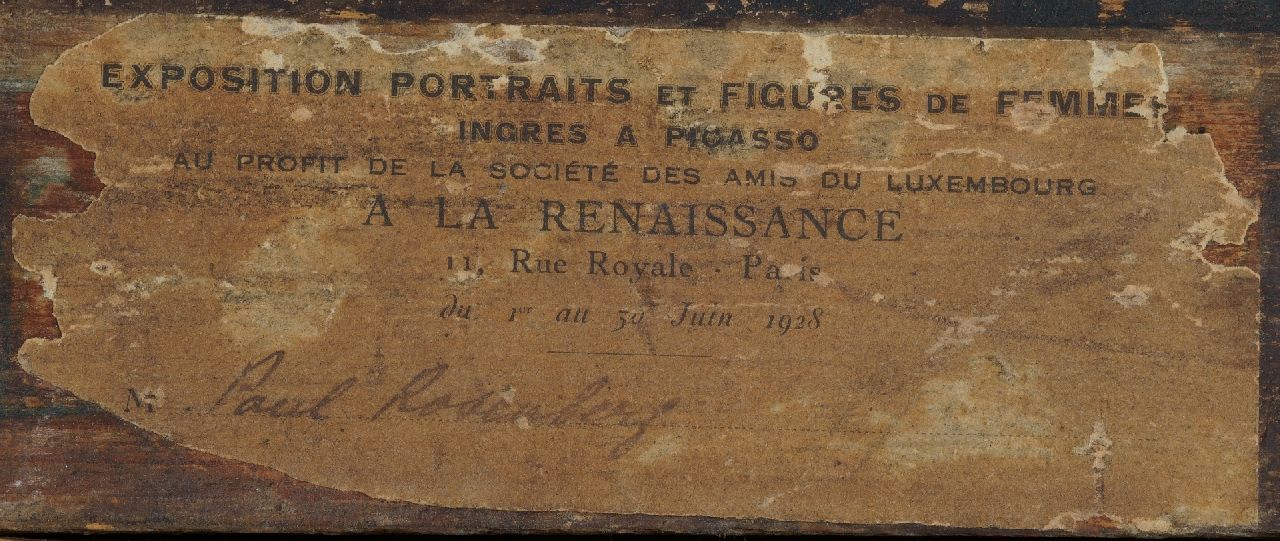 EXPOSITION PORTRAITS ET FIGURES DE FEMMES
INGRES A PICASSO
AU PROFIT DE LA SOCIÉTÉ DES AMIS DU LUXEMBOURG
A LA RENAISSANCE
11, Rue Royale - Paris
du 1er au 30 Juin 1928
Mr Paul Rosenberg